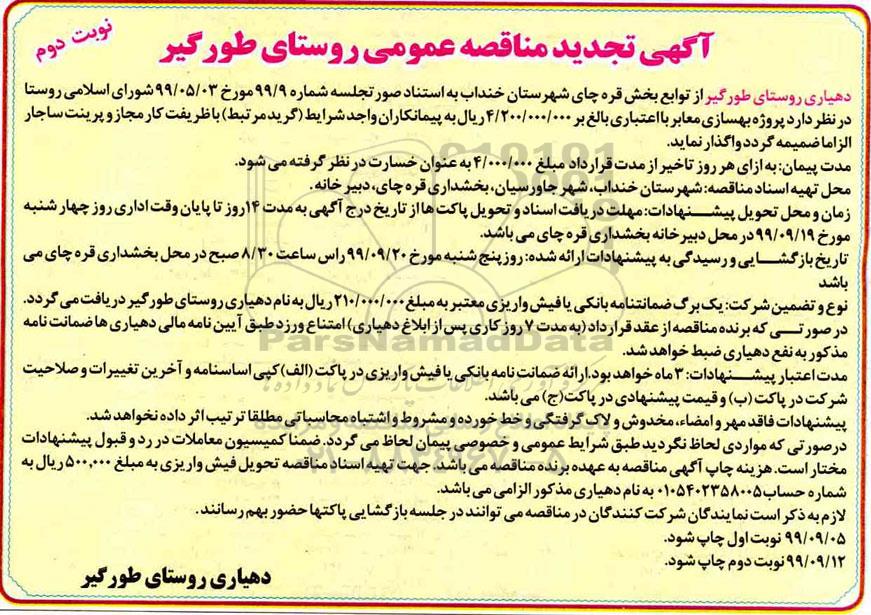 نوبت دوم
آگهی تجدید مناقصه عمومی روستای طورگیر
دهیاری روستای طورگیر از توابع بخش قره چای شهرستان خنداب به استناد صورتجلسه شماره ۹۹/۹ مورخ ۹۹/۰۵/۰۳ شورای اسلامی روستا
در نظر دارد پروژه بهسازی معابر با اعتباری بالغ بر ۴/۲۰۰/۰۰۰/۰۰۰ ریال به پیمانکاران واجد شرایط (گرید مرتبط) با ظریفت کار مجاز و پرینت ساجار
الزاما ضمیمه گردد واگذار نماید.
مدت پیمان: به ازای هر روز تاخیر از مدت قرارداد مبلغ ۴/۰۰۰/۰۰۰ به عنوان خسارت در نظر گرفته می شود.
محل تهیه اسناد مناقصه: شهرستان خنداب، شهر جاورسیان، بخشداری قره چای، دبیر خانه.
زمان و محل تحویل پیشنهادات: مهلت دریافت اسناد و تحویل پاکت ها از تاریخ درج آگهی به مدت ۱۴ روز تا پایان وقت اداری روز چهار شنبه
مورخ ۹۹/۰۹/۱۹ در محل دبیرخانه بخشداری قره چای می باشد.
تاریخ بازگشایی و رسیدگی به پیشنهادات ارائه شده: روز پنج شنبه مورخ ۹۹/۰۹/۲۰ راس ساعت ۸/۳۰ صبح در محل بخشداری قره چای می
باشد
نوع و تضمین شرکت: یک برگ ضمانتنامه بانکی یا فیش واریزی معتبر به مبلغ ۲۱۰/۰۰۰/۰۰۰ ریال به نام دهیاری روستای طورگیر دریافت می گردد.
در صورتی که برنده مناقصه از عقد قرارداد (به مدت ۷ روز کاری پس از ابلاغ دهیاری) امتناع ورزد طبق آیین نامه مالی دهیاری ها ضمانت نامه
مذکور به نفع دهیاری ضبط خواهد شد.
مدت اعتبار پیشنهادات: ۳ ماه خواهد بود. ارائه ضمانت نامه بانکی یا فیش واریزی در پاکت (الف) کپی اساسنامه و آخرین تغییرات و صلاحیت
شرکت در پاکت (ب) و قیمت پیشنهادی در پاکت (ج) می باشد.
پیشنهادات فاقد مهر و امضاء، مخدوش و لاک گرفتگی و خط خورده و مشروط و اشتباه محاسباتی مطلقا ترتیب اثر داده نخواهد شد.
درصورتی که مواردی لحاظ نگردید طبق شرایط عمومی و خصوصی پیمان لحاظ می گردد. ضمنا کمیسیون معاملات در رد و قبول پیشنهادات
مختار است. هزینه چاپ آگهی مناقصه به عهده برنده مناقصه می باشد. جهت تهیه اسناد مناقصه تحویل فیش واریزی به مبلغ ۵۰۰,۰۰۰ ریال به
شماره حساب ۰۱۰۵۴۰۲۳۵۸۰۰۵ به نام دهیاری مذکور الزامی می باشد.
لازم به ذکر است نمایندگان شرکت کنندگان در مناقصه می توانند در جلسه بازگشایی پاکتها حضور بهم رسانند.
۹۹/۰۹/۰۵ نوبت اول چاپ شود.
۹۹/۰۹/۱۲ نوبت دوم چاپ شود.
دهیاری روستای طورگیر
ParsNamadData